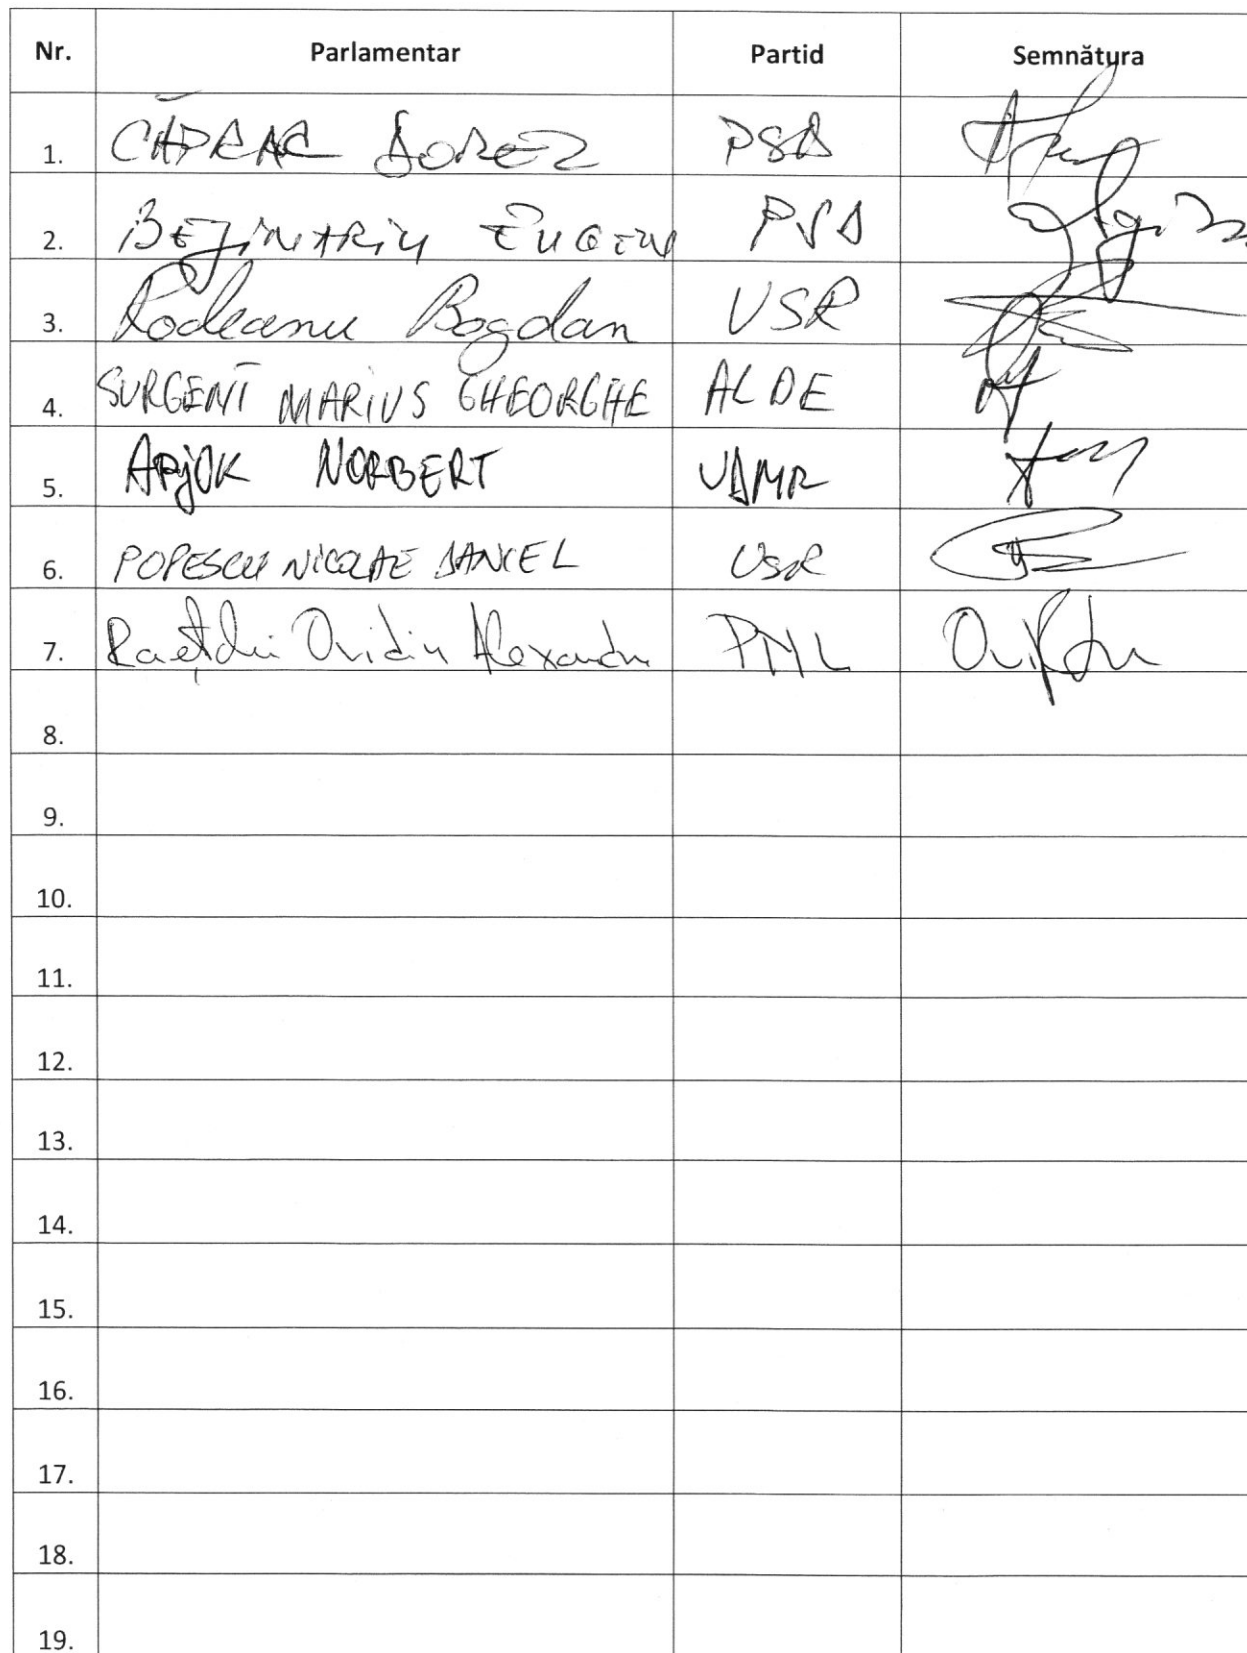 Nr. Parlamentar Partid Semnătura
1. CĂPRAR DOREL PSD
2. BEJINARIU EUGEN PSD
3. Rodeanu Bogdan USR
4. SURGENT MARIUS GHEORGHE ALDE
5. APJOK NORBERT UDMR
6. POPESCU NICOLAE DANIEL USR
7. Raețchi Ovidiu Alexandru PNL
8.
9.
10.
11.
12.
13.
14.
15.
16.
17.
18.
19.